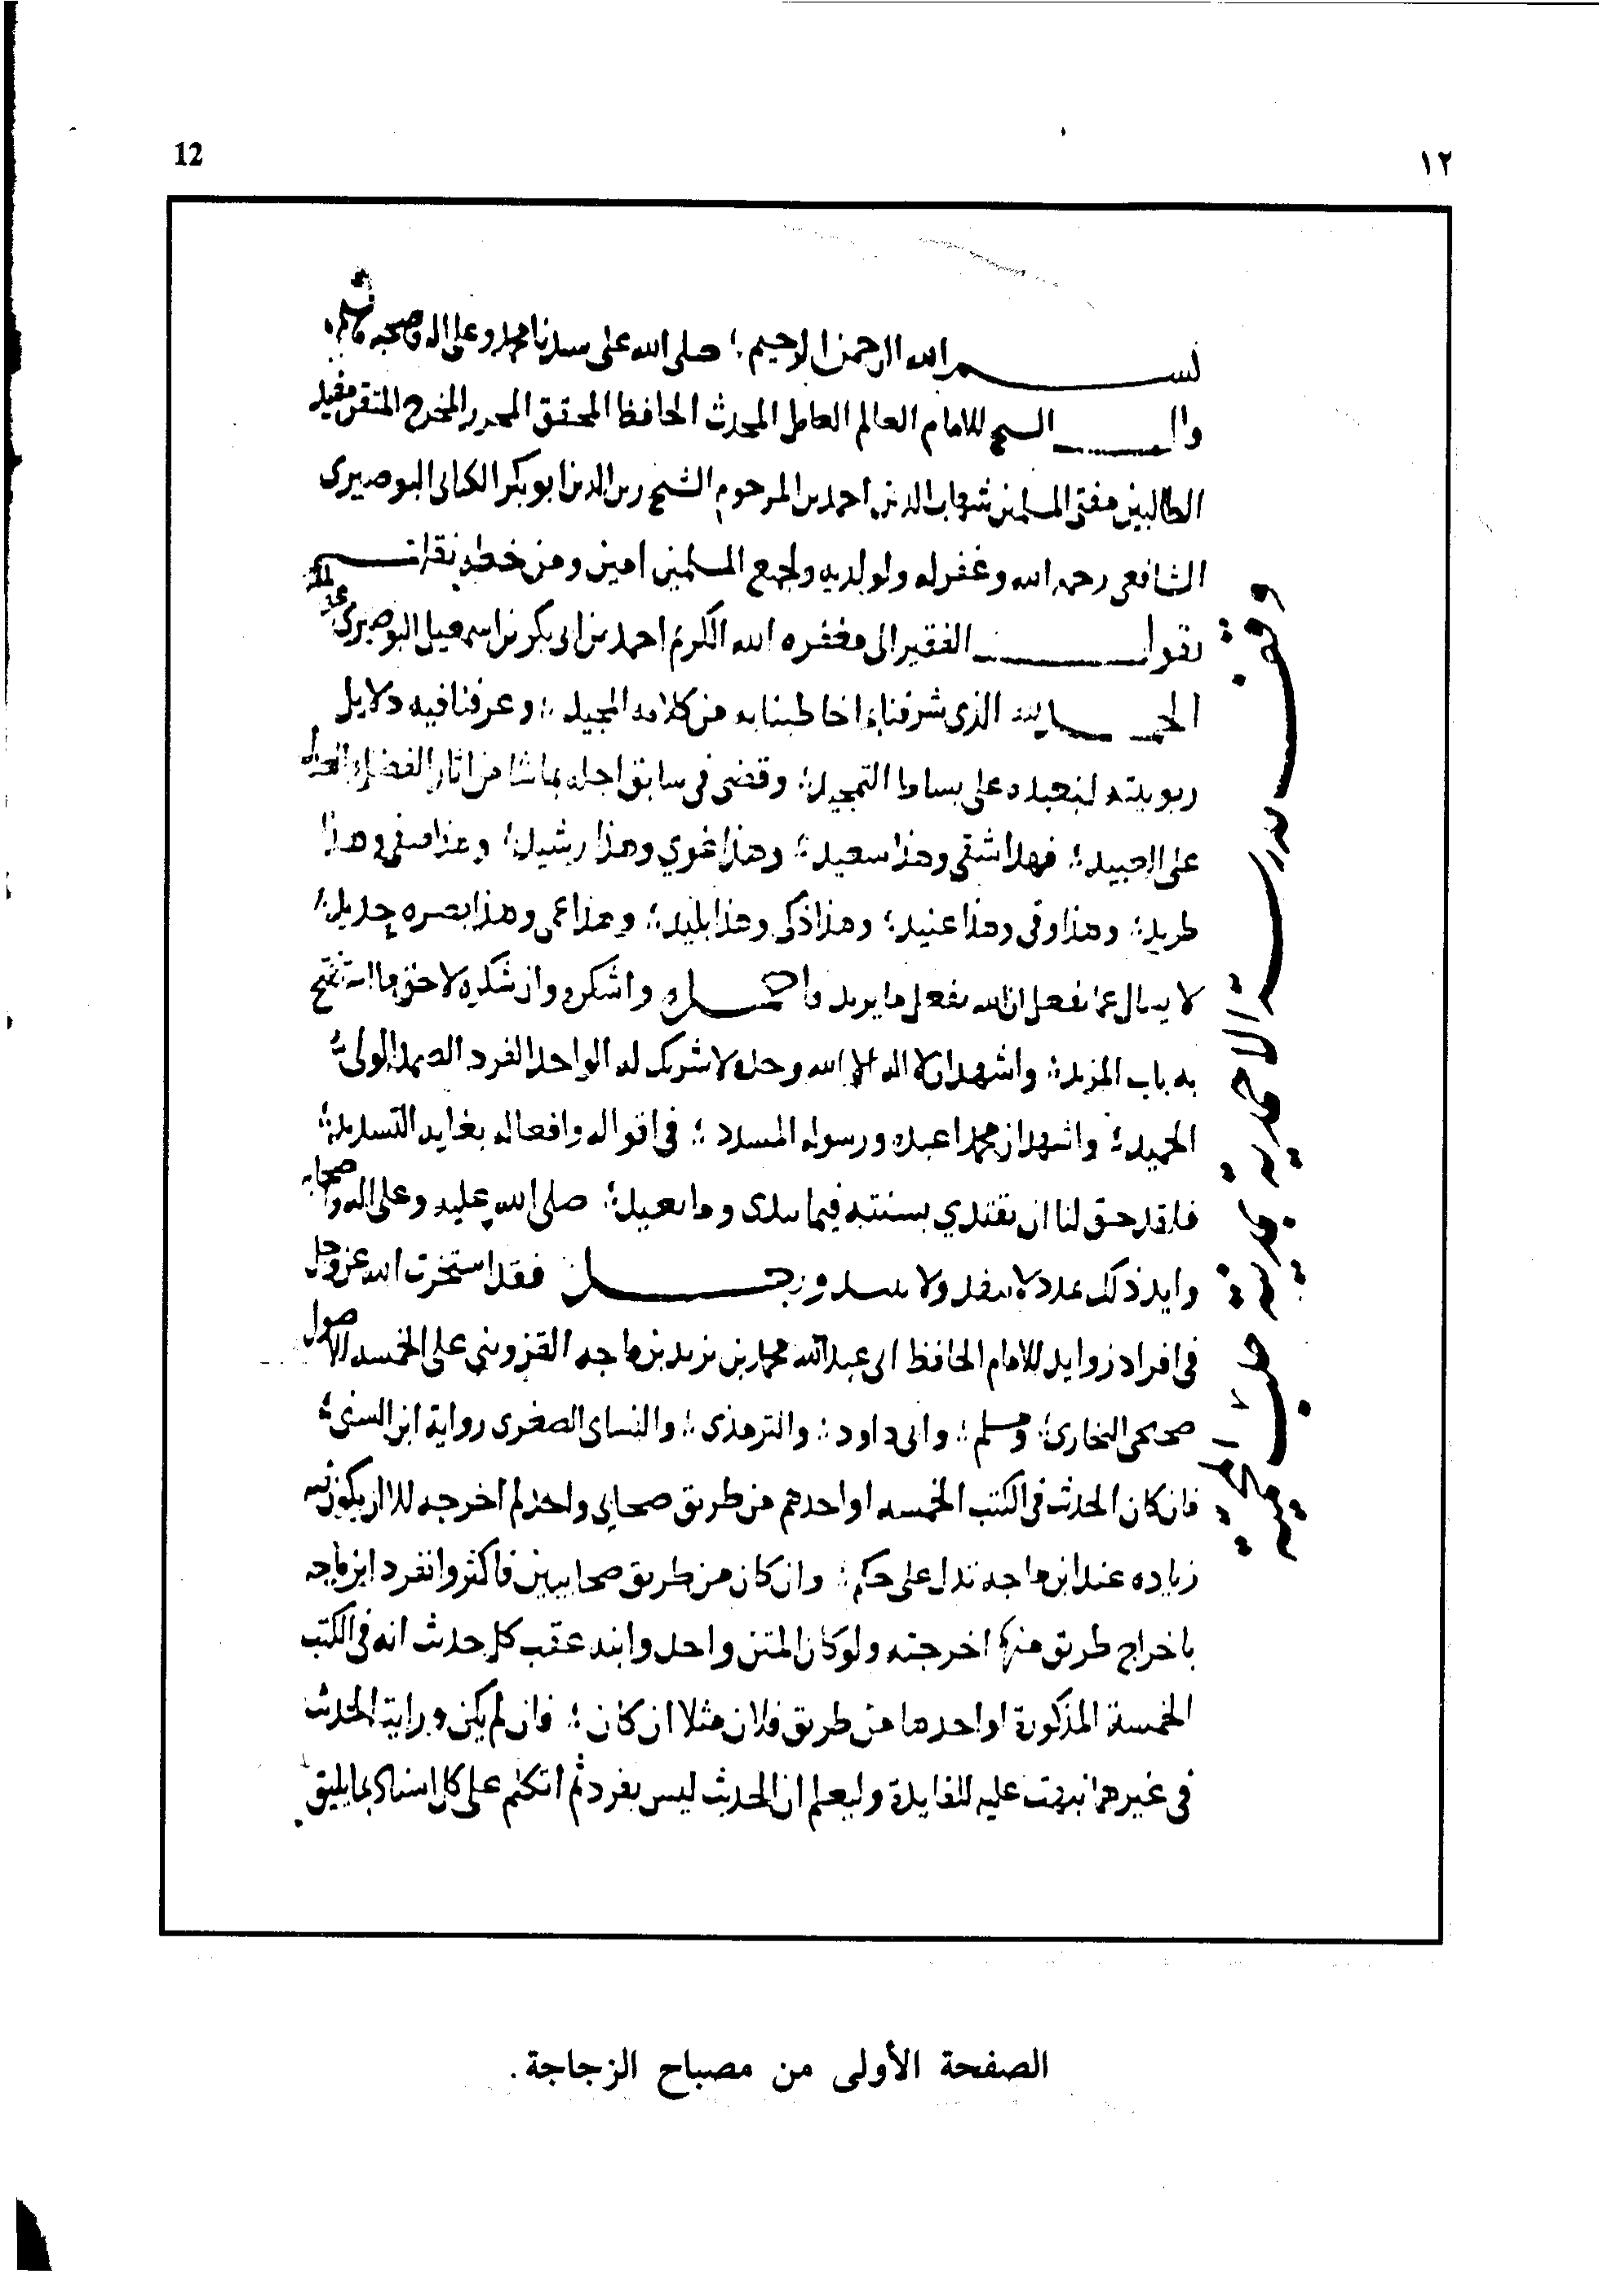 12
١٢
بسم الله الرحمن الرحيم؛ صلى الله على سيدنا محمد وعلى اله وصحبه وسلم
قال الشيخ الامام العالم العامل المحدث الحافظ المحقق المحرر المخرج المتقن مفيد
الطالبين مفتي المسلمين شهاب الدين احمد بن المرحوم الشيخ زين الدين ابو بكر الكناني البوصيري
الشافعي رحمه الله وغفر له ولوالديه ولجميع المسلمين امين ومن خطه نقلت
يقول الفقير الى مغفره الله الكريم احمد بن ابي بكر بن اسمعيل البوصيري
الحمد لله الذي شرفنا خاطبنا به من كلامه المجيد؛ وعرفنا فيه دلايل
ربوبيته لنعبده على بساط التمجيد؛ وقضى في سابق اجله بما شا من اثار الفضل والعدل
على العبيد؛ فهذا شقي وهذا سعيد؛ وهذا غوي وهذا رشيد؛ وهذا صفي وهذا
طريد؛ وهذا وفي وهذا عنيد؛ وهذا ذكي وهذا بليد؛ وهذا عمي وهذا بصره حديد؛
لا يسال عما يفعل ان الله يفعل ما يريد واحمده واشكره وان شكره لاحق ما استفتح
به باب المزيد؛ واشهد ان لا اله الا الله وحده لا شريك له الواحد الفرد الصمد الولي
الحميد؛ واشهد ان محمدا عبده ورسوله المسدد؛ في اقواله وافعاله بغايه التسديد؛
فلقد حق لنا ان نقتدي بسنته فيما يبدي وما يعيد؛ صلى الله عليه وعلى اله واصحابه
وايد ذلك عدد لا ينفد ولا يبيد وبعد فقد استخرت الله عز وجل
في افراد زوايد الامام الحافظ ابي عبد الله محمد بن يزيد بن ماجه القزويني على الخمسه الاصول
صحيحي البخاري؛ ومسلم؛ وابي داود؛ والترمذي؛ والنساي الصغرى رواية ابن السني؛
فان كان الحديث في الكتب الخمسه او احدهم من طريق صحابي واحد لم اخرجه الا ان يكون فيه
زياده عند ابن ماجه تدل على حكم؛ وان كان من طريق صحابيين فاكثر وانفرد ابن ماجه
باخراج طريق منها اخرجته ولو كان المتن واحد وانبه عقب كل حديث انه في الكتب
الخمسة المذكورة او احدها من طريق فلان مثلا ان كان؛ فان لم يكن ورايت الحديث
في غيرها نبهت عليه للفايدة وليعلم ان الحديث ليس بفرد ثم اتكلم على كل اسناد بما يليق
وقف مدرسة الاحمدية بمدينة حلب المحمية
الصفحة الأولى من مصباح الزجاجة.